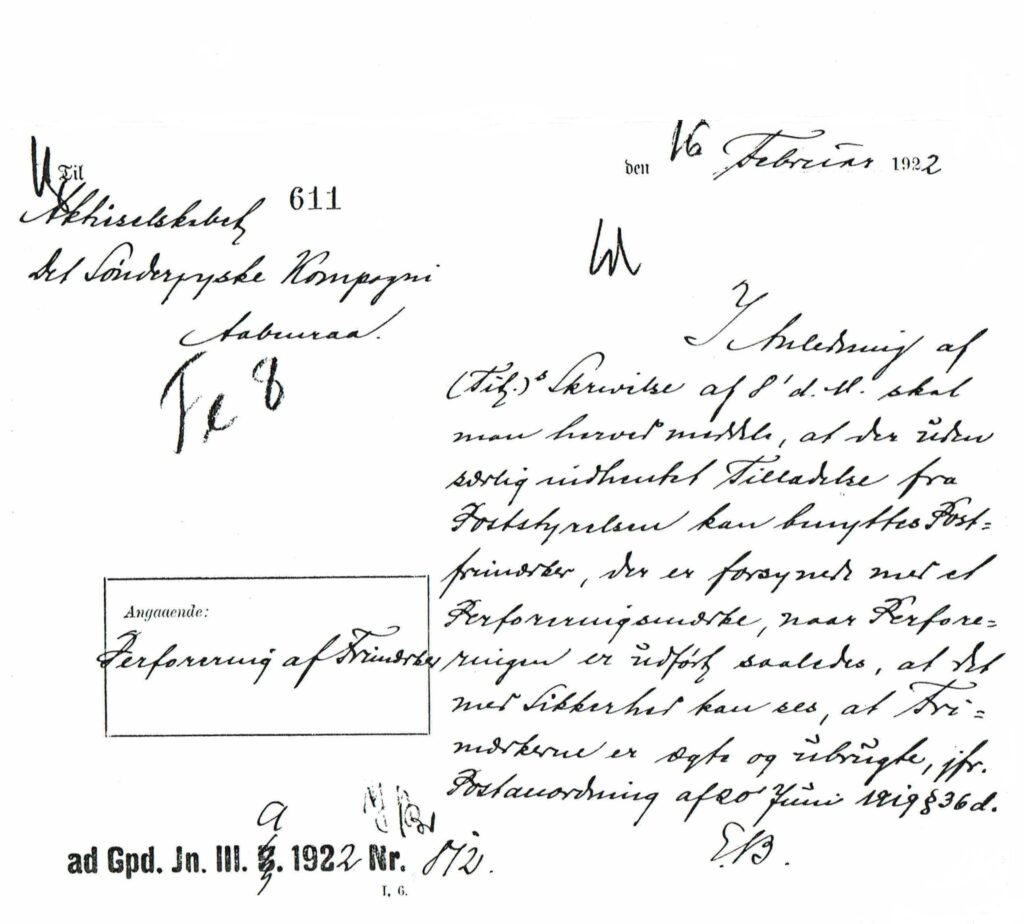 Til
611
Aktieselskabet
Det Sønderjyske Kompagni
Aabenraa.
Fe 8
den 16 Februar 1922
I Anledning af
(Tit.)s Skrivelse af 8' d. M. skal
man herved meddele, at der uden
særlig indhentet Tilladelse fra
Poststyrelsen kan benyttes Post=
frimærker, der er forsynede med et
Perforeringsmærke, naar Perfore=
ringen er udført saaledes, at det
med Sikkerhed kan ses, at Fri=
mærkerne er ægte og ubrugte, jfr.
Postanordning af 20' Juni 1919 § 36 d.
E.B.
Angaaende:
Perforering af Frimærker
ad Gpd. Jn. III. a. 1922 Nr. 812.
I, 6.